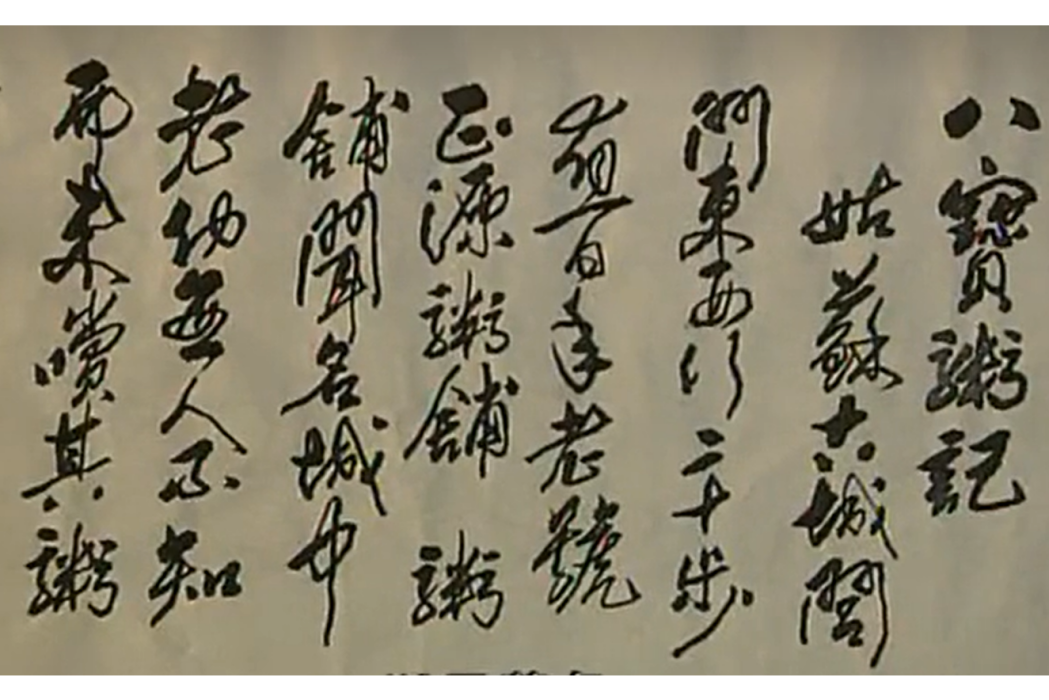 八寶粥記
姑蘇古城閶
門東西行二十步
有一百年老號
正源粥舖 粥
舖聞名城中
老幼無人不知
而未嚐其粥